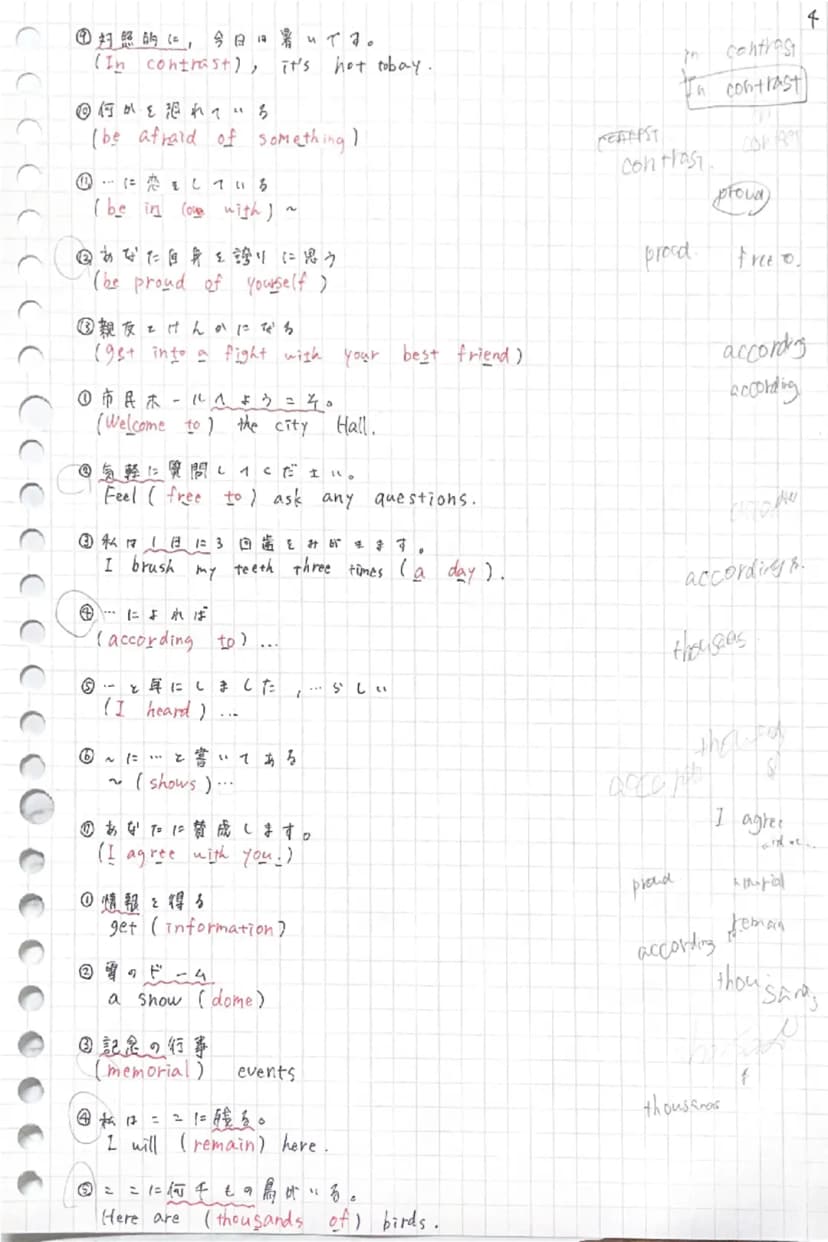 4
⑨対照的に、今日は暑いです。
(In contrast), it's hot tobay.
⑩何かを恐れている
(be afraid of something)
⑪…に恋をしている
(be in love with) ~
⑫あなた自身を誇りに思う
(be proud of yourself)
⑬親友とけんかになる
(get into a fight with your best friend)
①市民ホールへようこそ。
(Welcome to) the city Hall.
②気軽に質問してください。
Feel (free to) ask any questions.
③私は1日に3回歯をみがきます。
I brush my teeth three times (a day).
④…によれば
(according to) ...
⑤…と耳にしました,…らしい
(I heard) ...
⑥~に…と書いてある
~ (shows)…
⑦あなたに賛成します。
(I agree with you.)
①情報を得る
get (information)
②雪のドーム
a snow (dome)
③記念の行事
(memorial) events
④私はここに残る。
I will (remain) here.
⑤ここに何千もの鳥がいる。
Here are (thousands of) birds.
in contrast
In contrast
contrast.
proud
proud free to.
according
according
I agree
proud
remain
according